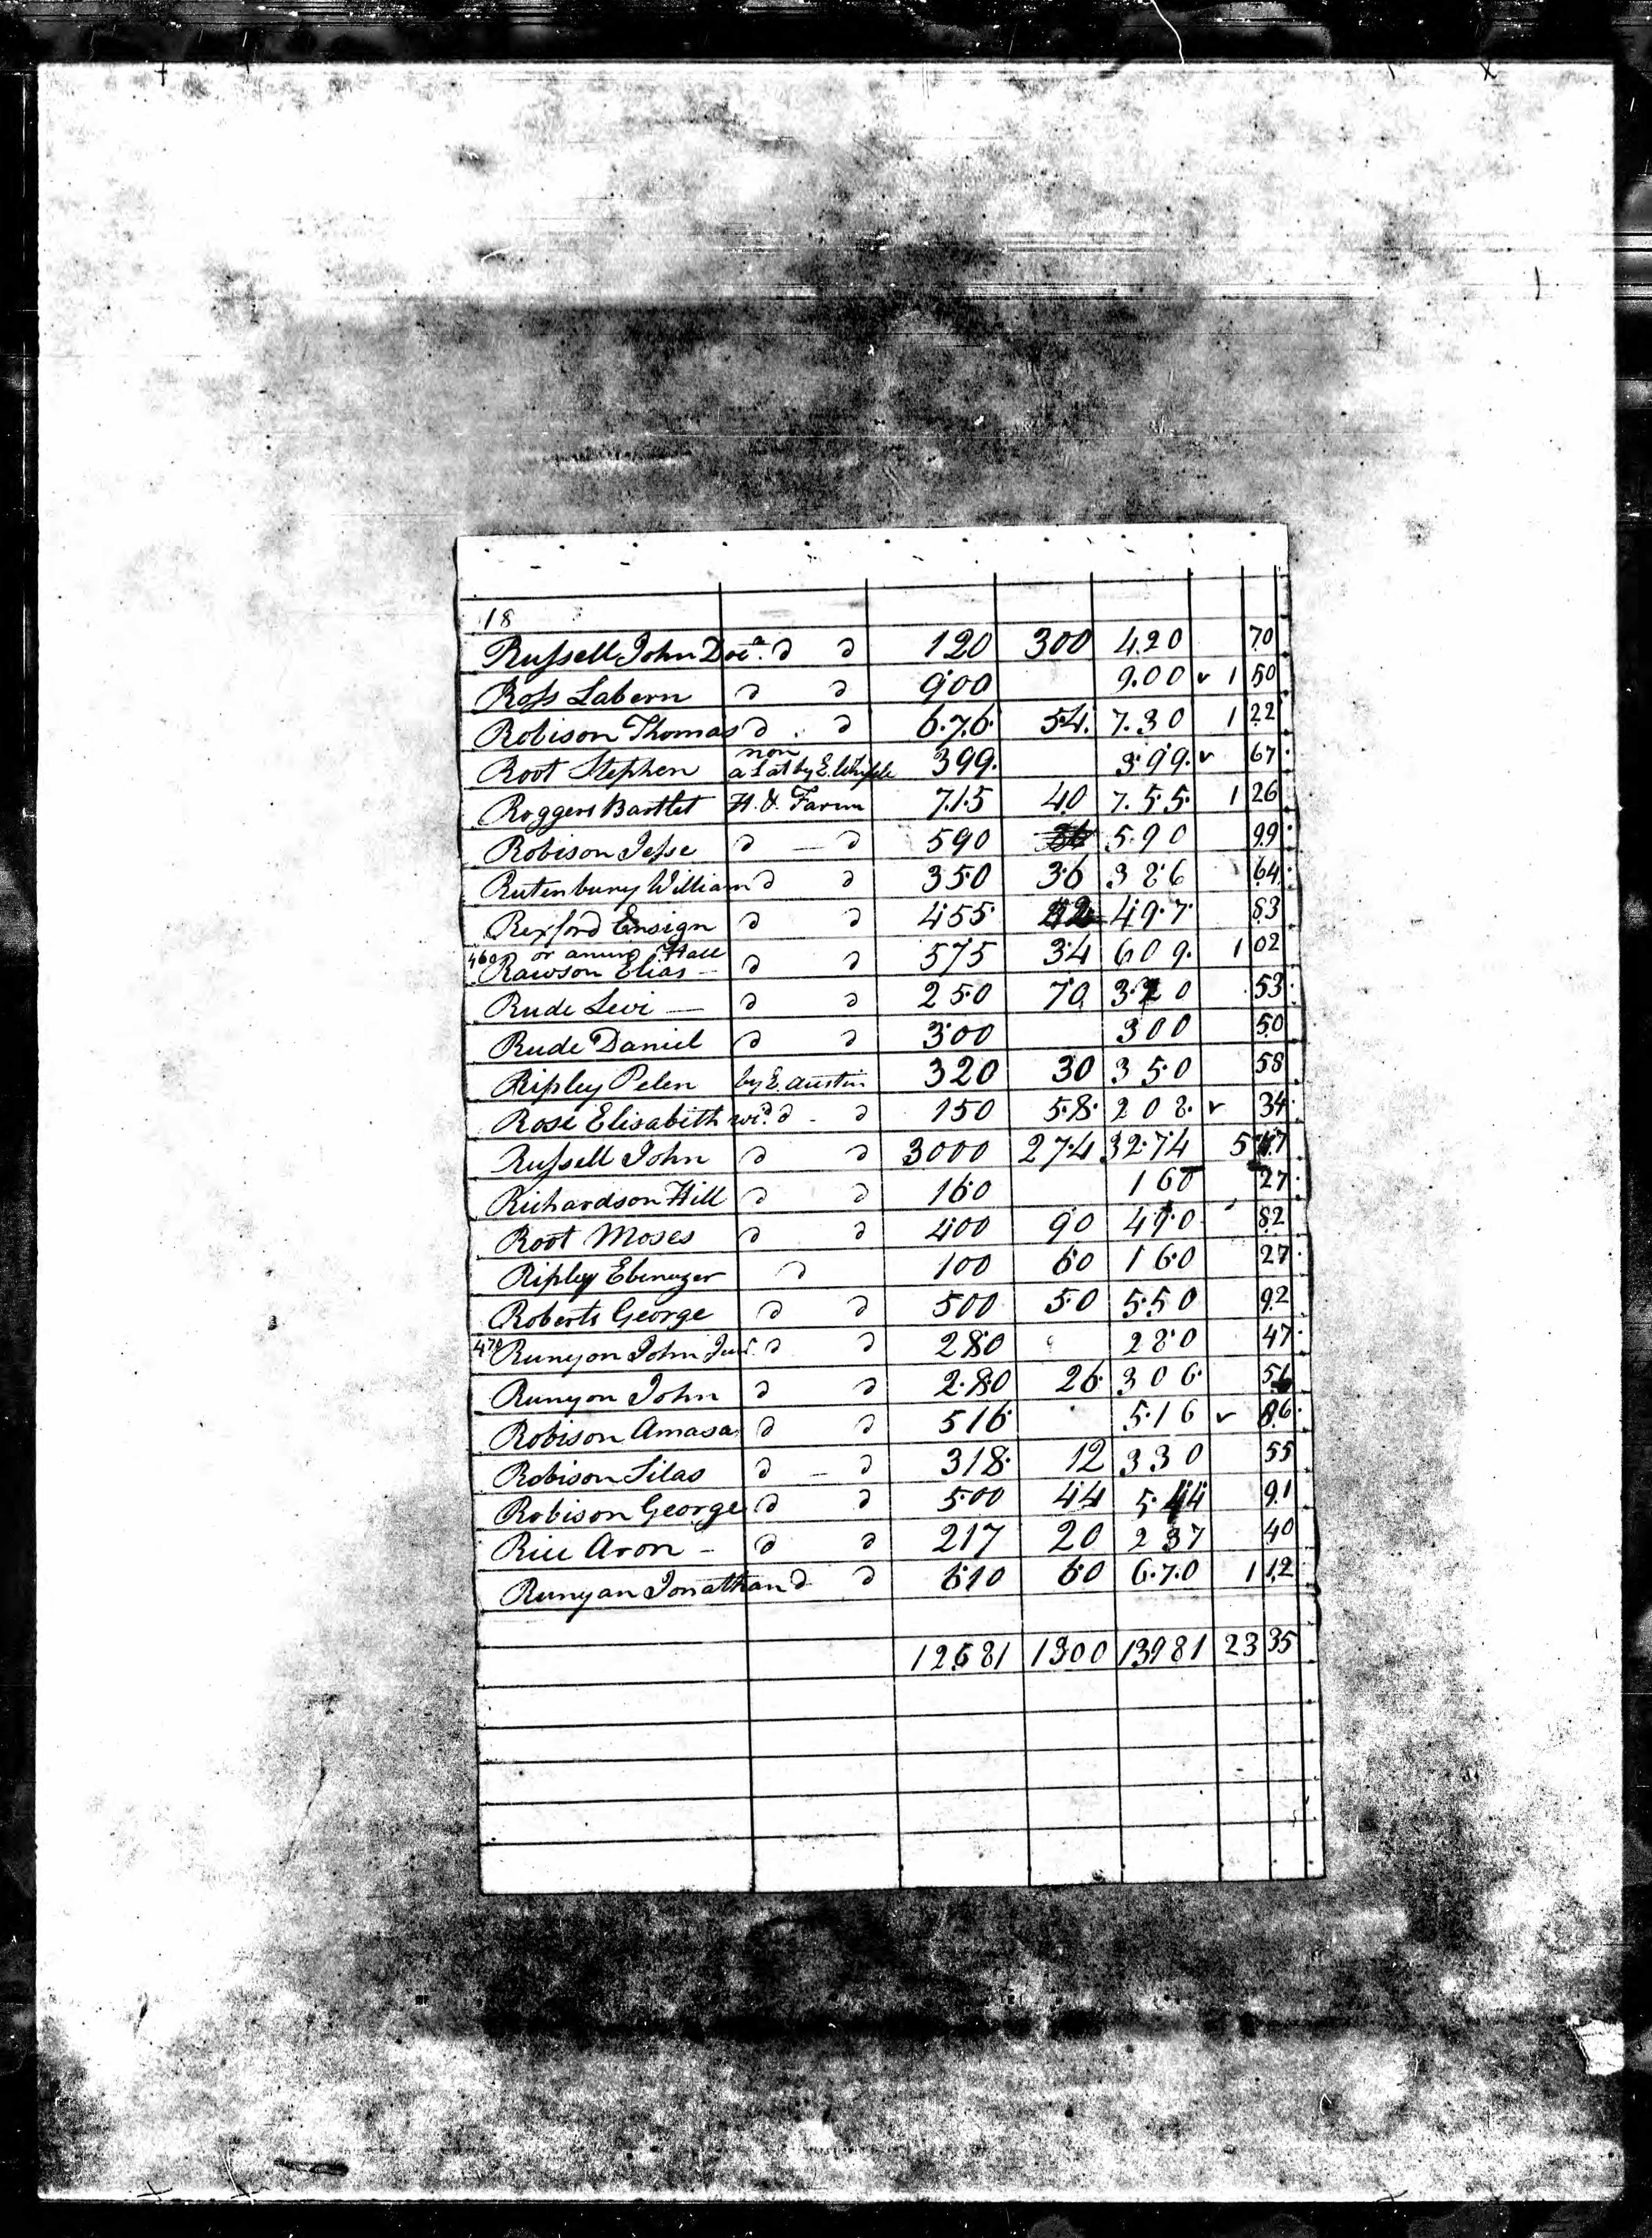 18
Russell John Doc.r d d 120 300 420 70
Ross Labern d d 900 900 v 1 50
Robison Thomas d d 676 54 730 1 22
non
Root Stephen a Lot by E. 399 399 v 67
Roggers Bartlet H. & Farm 715 40 755 1 26
Robison Jesse d — d 590 590 99
Rutenbury William d d 350 36 386 64
Rexford Ensign d d 455 42 497 83
or Hall
460 Rawson Elias — d d 575 34 609 1 02
Rude Levi — d d 250 70 320 53
Rude Daniel d d 300 300 50
Ripley Pelen by E. Austin 320 30 350 58
Rose Elisabeth wid. d - d 150 58 208 v 34
Russell John d d 3000 274 3274 5 47
Richardson Hill d d 160 160 27
Root Moses d d 400 90 490 82
Ripley Ebenezer d 100 60 160 27
Roberts George d d 500 50 550 92
470 Runyon John Junr. d d 280 280 47
Runyon John d d 280 26 306 51
Robison Amasa d d 516 516 v 86
Robison Silas d — d 318 12 330 55
Robison George d d 500 44 544 91
Rice Aron - d d 217 20 237 40
Runyan Jonathan d d 610 60 670 1 12
12681 1300 13981 23 35